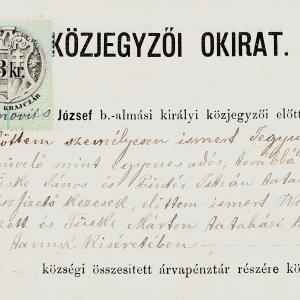 KÖZJEGYZŐI OKIRAT.
3 kr.
KRAJCZÁR
József b.-almási királyi közjegyző előtt
előttem személyesen ismert
művelő mint egyenes adós, továbbá
Füske János és Pintér István
készfizető kezesek, előttem ismert
és Füske Márton tataházi
tanuk kiséretében
községi összesített árvapénztár részére köz